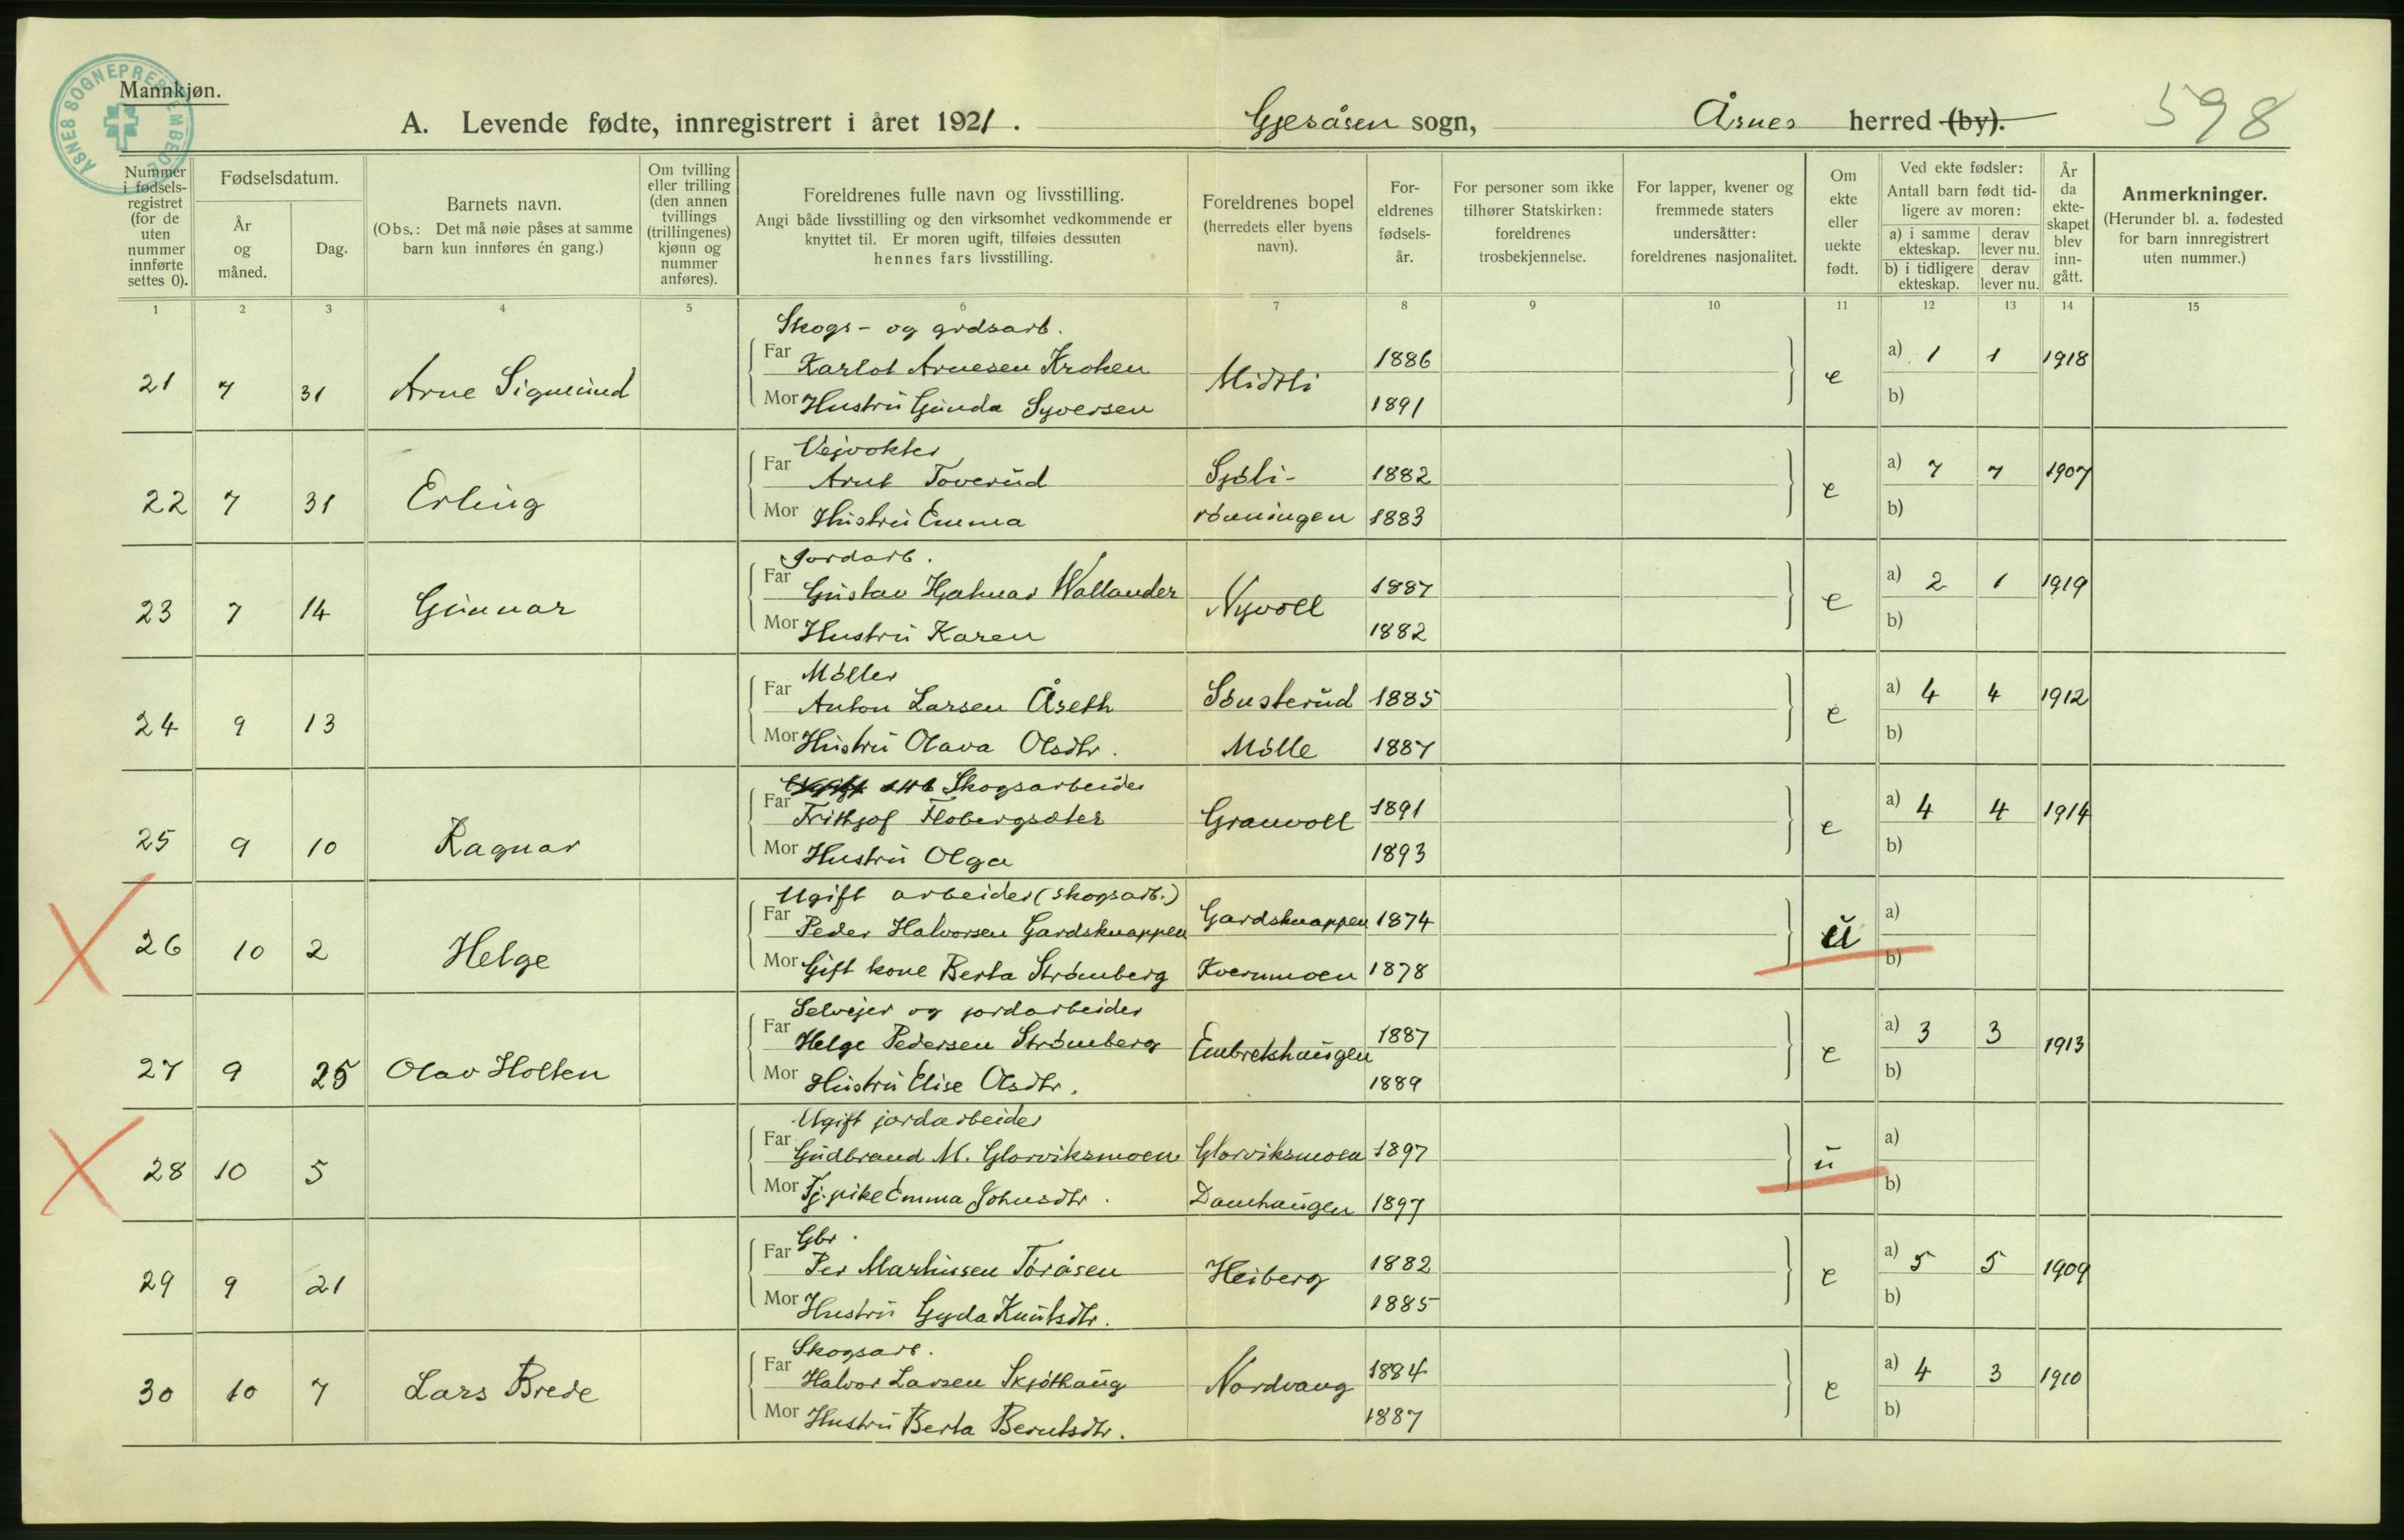 ÅSNES SOGNEPRESTEMBEDE
Mannkjøn.
A. Levende fødte, innregistrert i året 1921. Gjesåsen sogn, Åsnes herred (by). 598
Nummer i fødsels-registret (for de uten nummer innførte settes 0).
Fødselsdatum.
År og måned.
Dag.
Barnets navn.
(Obs.: Det må nøie påses at samme barn kun innføres én gang.)
Om tvilling eller trilling (den annen tvillings (trillingenes) kjønn og nummer anføres).
Foreldrenes fulle navn og livsstilling.
Angi både livsstilling og den virksomhet vedkommende er knyttet til. Er moren ugift, tilføies dessuten hennes fars livsstilling.
Foreldrenes bopel (herredets eller byens navn).
For-eldrenes fødsels-år.
For personer som ikke tilhører Statskirken: foreldrenes trosbekjennelse.
For lapper, kvener og fremmede staters undersåtter: foreldrenes nasjonalitet.
Om ekte eller uekte født.
Ved ekte fødsler: Antall barn født tid-ligere av moren:
a) i samme ekteskap. derav lever nu.
b) i tidligere ekteskap. derav lever nu.
År da ekte-skapet blev inn-gått.
Anmerkninger.
(Herunder bl. a. fødested for barn innregistrert uten nummer.)
1 2 3 4 5 6 7 8 9 10 11 12 13 14 15
Skogs- og grdsarb.
21 7 31 Arne Sigmund Far Karlot Arnesen Kroken Midtli 1886 e a) 1 1 1918
Mor Hustru Gunda Syversen 1891 b)
Vejvokter
22 7 31 Erling Far Arnt Toverud Sjøli- 1882 e a) 7 7 1907
Mor Hustru Emma rønningen 1883 b)
Jordarb.
23 7 14 Gunnar Far Gustav Hjalmar Wallander Nyvoll 1887 e a) 2 1 1919
Mor Hustru Karen 1882 b)
Møller
24 9 13 Far Anton Larsen Åseth Sønsterud 1885 e a) 4 4 1912
Mor Hustru Olava Olsdtr. Mølle 1887 b)
Skogsarbeider
25 9 10 Ragnar Far Frithjof Flobergsæter Granvoll 1891 e a) 4 4 1914
Mor Hustru Olga 1893 b)
Ugift arbeider (skogsarb.)
26 10 2 Helge Far Peder Halvorsen Gardsknappen Gardsknappen 1874 u a)
Mor Gift kone Berta Strømberg Kvernmoen 1878 b)
Selvejer og jordarbeider
27 9 25 Olav Holten Far Helge Pedersen Strømberg Embretshaugen 1887 e a) 3 3 1913
Mor Hustru Elise Olsdtr. 1889 b)
Ugift jordarbeider
28 10 5 Far Gudbrand M. Glorviksmoen Glorviksmoen 1897 u a)
Mor Tj.pike Emma Johnsdtr. Damhaugen 1897 b)
Gbr.
29 9 21 Far Per Martinsen Toråsen Heiberg 1882 e a) 5 5 1909
Mor Hustru Gyda Knutsdtr. 1885 b)
Skogsarb.
30 10 7 Lars Brede Far Halvor Larsen Skjøthaug Nordvang 1884 e a) 4 3 1910
Mor Hustru Berta Berntsdtr. 1887 b)